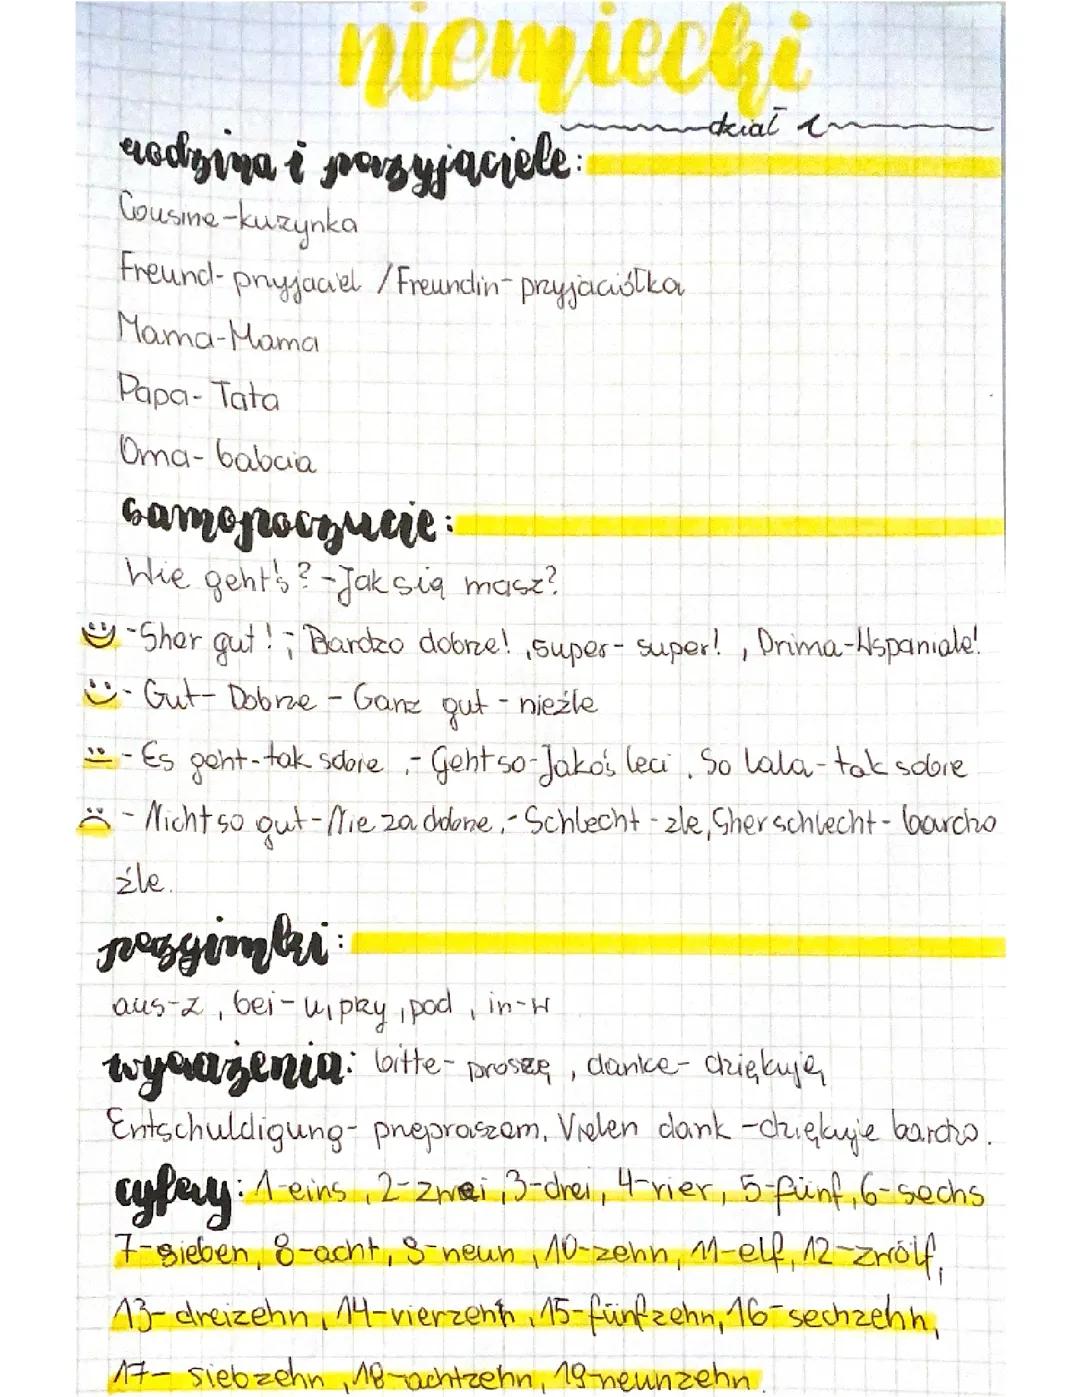 niemiecki
dział 1
rodzina i przyjaciele:
Cousine-kuzynka
Freund-przyjaciel / Freundin-przyjaciółka
Mama-Mama
Papa-Tata
Oma-babcia
samopoczucie:
Wie geht's? -Jak się masz?
-Sher gut! ; Bardzo dobrze! ,super- super! , Prima-Wspaniale!
- Gut- Dobrze - Ganz gut - nieźle
- Es geht-tak sobie ,- Geht so-Jakoś leci , So lala-tak sobie
- Nicht so gut-Nie za dobrze,- Schlecht - źle, Sher schlecht- bardzo
źle.
przyimki:
aus-z , bei-u, przy, pod , in-w
wyrażenia: bitte- proszę , danke- dziękuję,
Entschuldigung- przepraszam, Vielen dank -dziękuje bardzo.
cyfery: 1-eins , 2-zwei , 3-drei, 4-vier, 5-fünf, 6-sechs
7-sieben, 8-acht, 9-neun , 10-zehn, 11-elf, 12-zwölf,
13-dreizehn , 14-vierzehn , 15-fünfzehn, 16-sechzehn,
17- siebzehn , 18-achtzehn, 19-neunzehn.